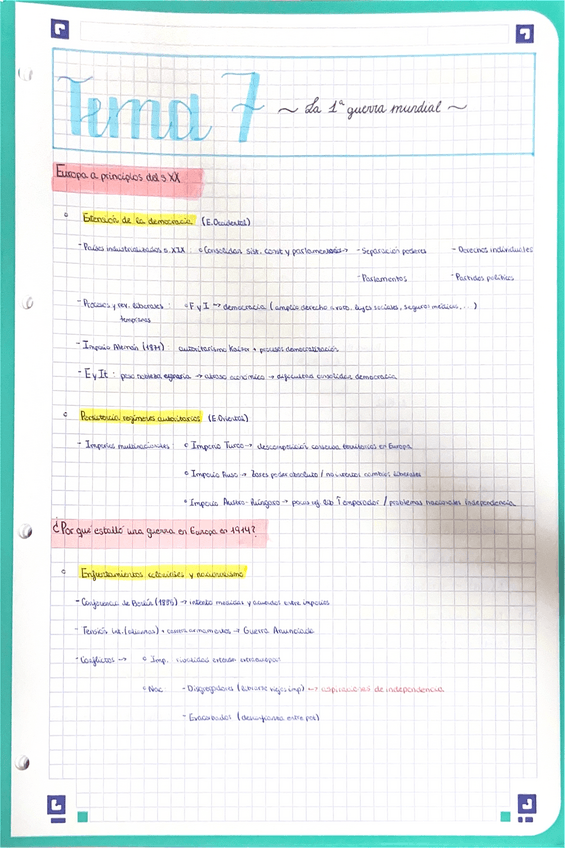 Tema 7 ~ La 1ª guerra mundial ~
Europa a principios del s XX
Extensión de la democracia (E.Occidental)
- Países industrializados s. XIX: Consolidan sist. const y parlamentarios → - Separación poderes - Derechos individuales
- Parlamentos - Partidos políticos
- Procesos y rev. liberales : F y I → democracia (amplio derecho a voto, leyes sociales, seguros médicos, ...)
tempranas
- Imperio Alemán (1871) : autoritarismo Kaiser + procesos democratización
- E y It : peso nobleza agraria → atraso económico → dificultará consolidar democracia
Persistencia regímenes autoritarios (E.Oriental)
- Imperios multinacionales : Imperio Turco → descomposición conserva territorios en Europa
Imperio Ruso → Zares poder absoluto / no ciertos cambios liberales
Imperio Austro-Húngaro → pocas ref. lib ↑ emperador / problemas nacionales independencia
¿Por qué estalló una guerra en Europa en 1914?
Enfrentamientos coloniales y nacionalismo
- Conferencia de Berlín (1885) → intento medidas y acuerdos entre imperios
- Tensión int. (alianzas) + carrera armamentos → Guerra Anunciada
- Conflictos → Imp. rivalidad
Nac - Disgregadores (librarse viejos imp) → aspiraciones de independencia
- Exacerbados (desconfianza entre pos)